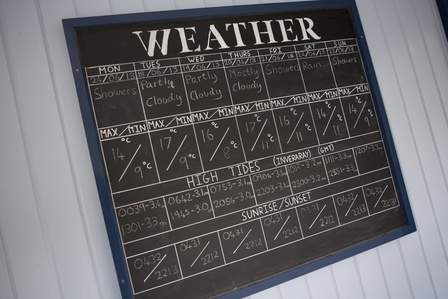 WEATHER
MON TUES WED THURS FRI SAT SUN
Showers Partly Cloudy Partly Cloudy Mostly Cloudy Showers Rain Showers
MAX MIN MAX MIN MAX MIN MAX MIN MAX MIN MAX MIN MAX MIN
14 °C 9 °C 17 °C 9 °C 16 °C 8 °C 17 °C 11 °C 16 °C 11 14 °C 14 °C 9
HIGH TIDES (INVERARAY) (GMT)
0039-3.4 0642-3.1 0753-3.1
1301-3.3m 1945-3.0 2056-3.0 2203-3.1 2300-3.2
SUNRISE/SUNSET
0432/2213 0431/2212 0431/2212 0431/2212 2212 0432/2213 0432/2213